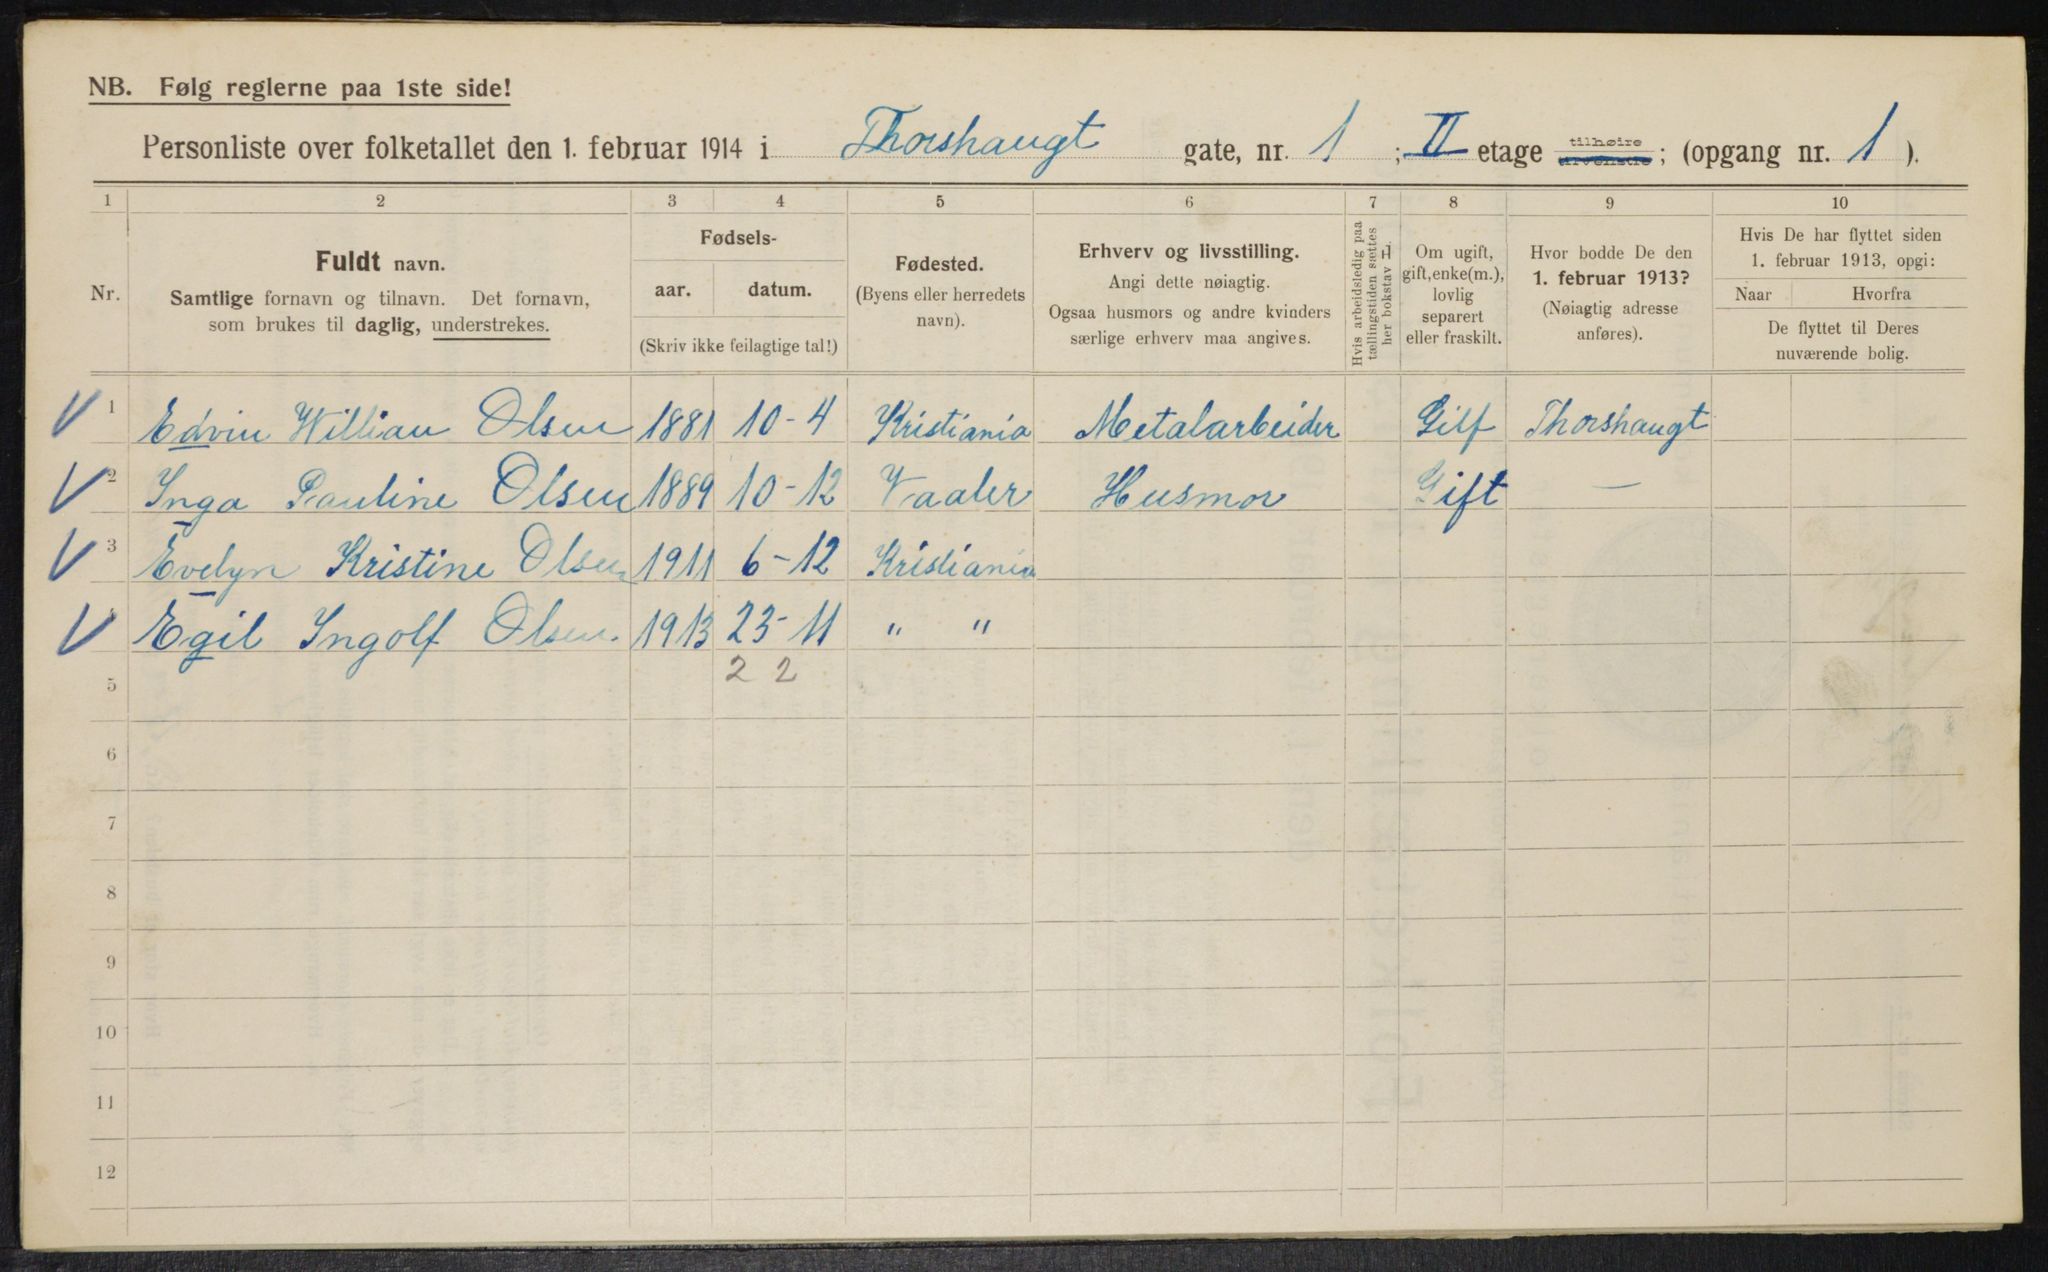 NB. Følg reglerne paa 1ste side!
Personliste over folketallet den 1. februar 1914 i Thorshaugt gate, nr. 1 ; II etage tilhøire ; (opgang nr. 1 ).
1 2 3 4 5 6 7 8 9 10
Nr.
Fuldt navn.
Samtlige fornavn og tilnavn. Det fornavn,
som brukes til daglig, understrekes.
Fødsels-
aar. datum.
(Skriv ikke feilagtige tal!)
Fødested.
(Byens eller herredets
navn).
Erhverv og livsstilling.
Angi dette nøiagtig.
Ogsaa husmors og andre kvinders
særlige erhverv maa angives.
Hvis arbeidsledig paa
tællingstiden sættes
her bokstav L.
Om ugift,
gift, enke(m.),
lovlig
separert
eller fraskilt.
Hvor bodde De den
1. februar 1913?
(Nøiagtig adresse
anføres).
Hvis De har flyttet siden
1. februar 1913, opgi:
Naar Hvorfra
De flyttet til Deres
nuværende bolig.
1 Edvin Willian Olsen 1881 10-4 Kristiania Metalarbeider Gilf Thorshaugt
2 Inga Pauline Olsen 1889 10-12 Vaaler Husmor Gift —
3 Evelyn Kristine Olsen 1911 6-12 Kristiania
Egil Ingolf Olsen. 1913 23-11 " "
5 2 2
6
7
8
9
10
11
12